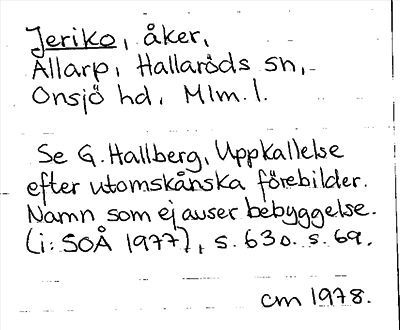 Jeriko, åker,
Allarp, Hallaröds sn,
Onsjö hd, Mlm. l.
Se G. Hallberg, Uppkallelse
efter utomskånska förebilder.
Namn som ej avser bebyggelse.
(i: SOÅ 1977), s. 63 o. s. 69.
cm 1978.